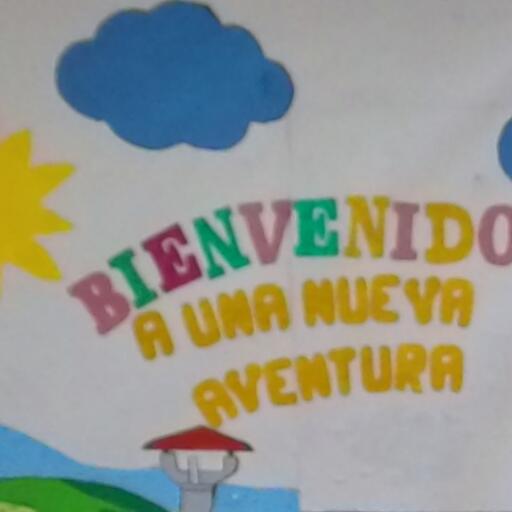 BIENVENIDO
A UNA NUEVA
AVENTURA